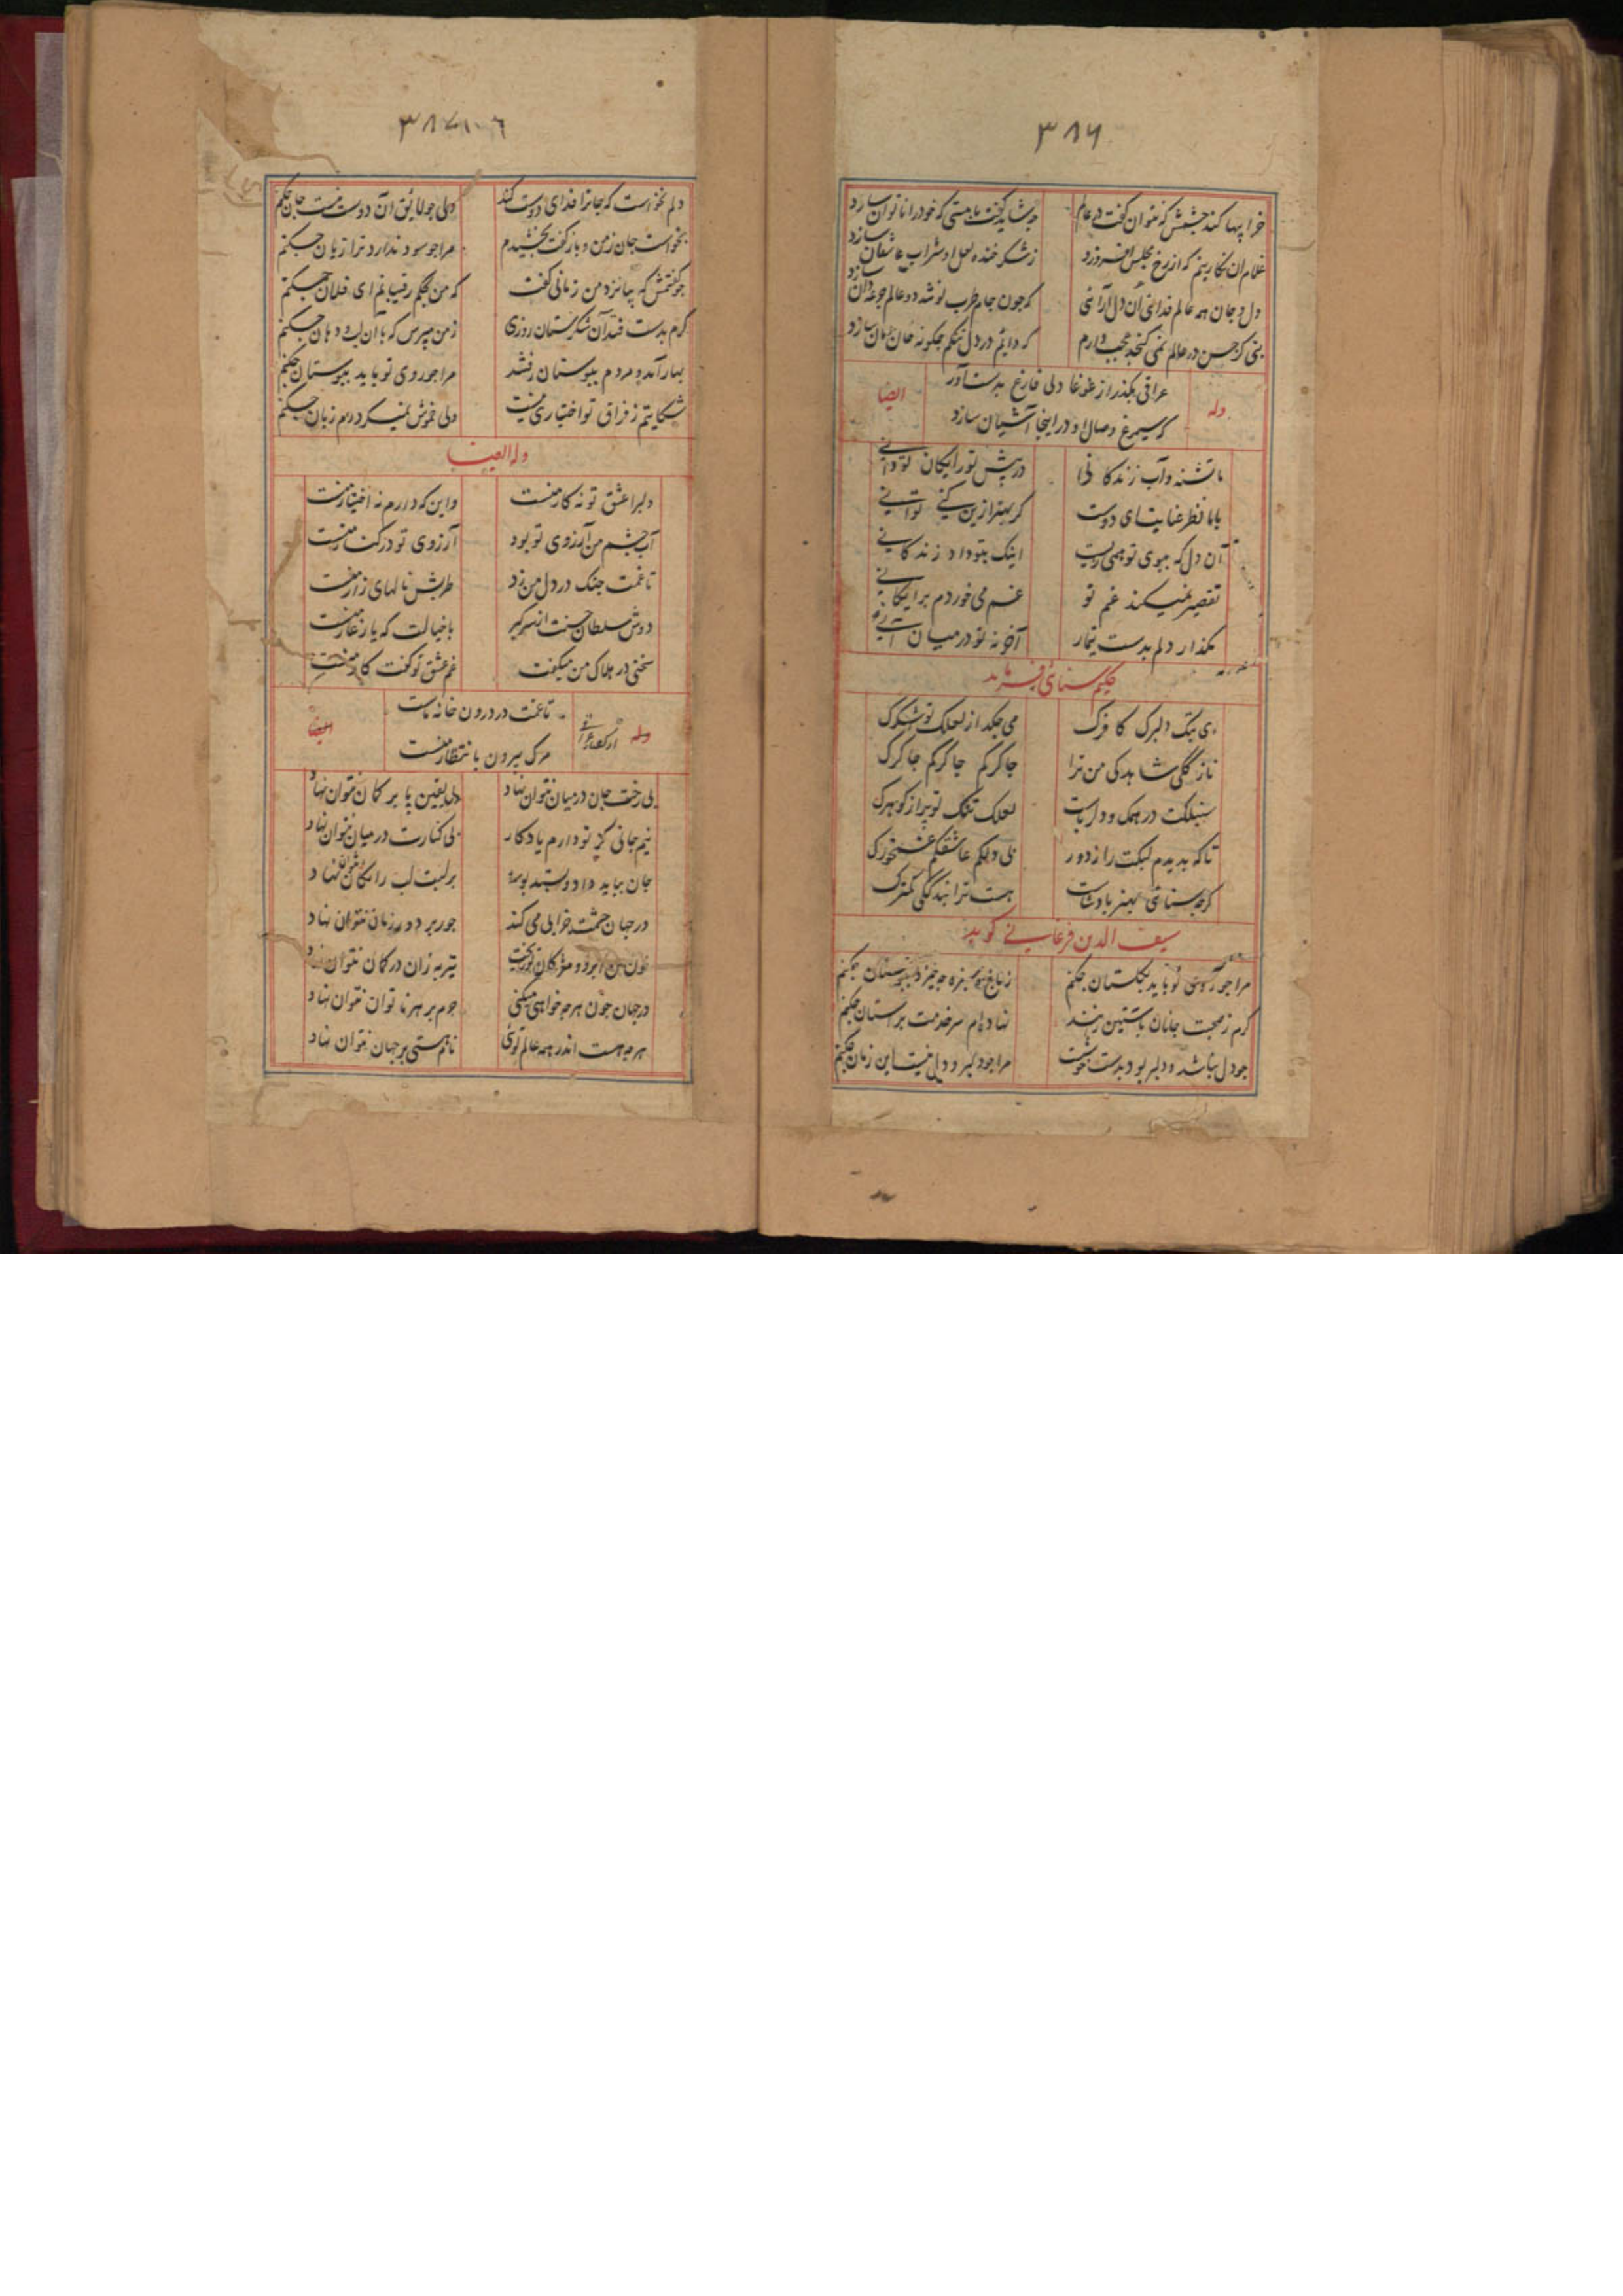 ۳۸۶
خرابیها کند چشمش که نتوان گفت در عالم
چه شاید گفت با مستی که خود را ناتوان سازد
غلام آن نگارینم که از رخ مجلس افروزد
ز شکر خنده لعل او شراب عاشقان سازد
دل و جان همه عالم فدای آن دل آرائی
که چون جام طرب نوشد دو عالم جرعه دان سازد
بتی کز حسن در عالم نمی گنجد عجب دارم
که دایم در دل تنگم چگونه خان و مان سازد
وله
عراقی بگذر از غوغا دلی فارغ بدست آور
که سیمرغ وصال او در اینجا آشیان سازد
ایضا
ما تشنه و آب زندگانی
در پیش تو رایگان تو دانی
با ما نظر عنایت ای دوست
گر بهتر ازین کنی توانی
آن دل که ببوی تو همی زیست
اینک بتو داد زندگانی
تقصیر نمیکند غم تو
غم می خوردم برایگانی
مگذار دلم بدست تیمار
آخر نه تو در میان آنی
حکیم سنائی فرماید
ای بتک دلبرک کافرک
می چکد از لعلک تو شکرک
نازگکی شاهدکی من ترا
چاکرکم چاکرکم چاکرک
لعلک تنگک تو پر از گوهرک
تا که بدیدم لبکت را ز دور
بی دلکم عاشقکم غمخورک
گرچه سنائی بهنر پادشاست
هست ترا بندگکی کمترک
سیف الدین فرغانی گوید
مرا چو روی تو باید بگلستان چکنم
ز باغ چو سبزه چه خیزد ببوستان چکنم
گرم ز صحبت جانان بآستین رانند
نهاده ام سر خدمت بر آستان چکنم
چو دل نباشد و دلبر بود بدست خوشست
مرا چو دلبر و دل نیست این زمان چکنم
۳۸۷
دلم نخواست که جانرا فدای دوست کند
ولی چو لایق آن دوست نیست جان چکنم
نخواست جان ز من و باز گفت بخشیدم
مرا چو سود ندارد ترا زیان چکنم
چو گفتمش که بیا نزد من زمانی گفت
که من بحکم رقیبانم ای فلان چکنم
گرم بدست فتد آن شکرستان روزی
ز من مپرس که با آن لب و دهان چکنم
بهار آمد و مردم ببوستان رفتند
مرا چو روی تو باید ببوستان چکنم
شکایتم ز فراق تو اختیاری نیست
ولی خموش نمیگردد این زبان چکنم
وله ایضا
دلبرا عشق تو نه کار منست
واین که دارم نه اختیار منست
آب چشم من آرزوی تو بود
آرزوی تو در کنار منست
تا غمت چنگ در دل من زد
طربش نالهای زار منست
دوش سلطان حسنت از سر کبر
با خیالت که یار غار منست
سخنی در هلاک من میگفت
غم عشق تو گفت کار منست
وله
تا غمت در درون خانه ماست
مرگ بیرون بانتظار منست
ایضا
بی رخت جان در میان نتوان نهاد
بی یقین پا بر گمان نتوان نهاد
نیم جانی کز تو دارم یادگار
بی کنارت در میان نتوان نهاد
جان بباید داد و بستد بوسه
بر لبت لب رایگان نتوان نهاد
در جهان چشمت خرابی می کند
جور بر دور زمان نتوان نهاد
خون من ابرو و مژگان تو ریخت
تیر به زان در کمان نتوان نهاد
در جهان چون هر چه خواهی میکنی
جرم بر هر ناتوان نتوان نهاد
هر چه هست اندر همه عالم توئی
نام هستی بر جهان نتوان نهاد